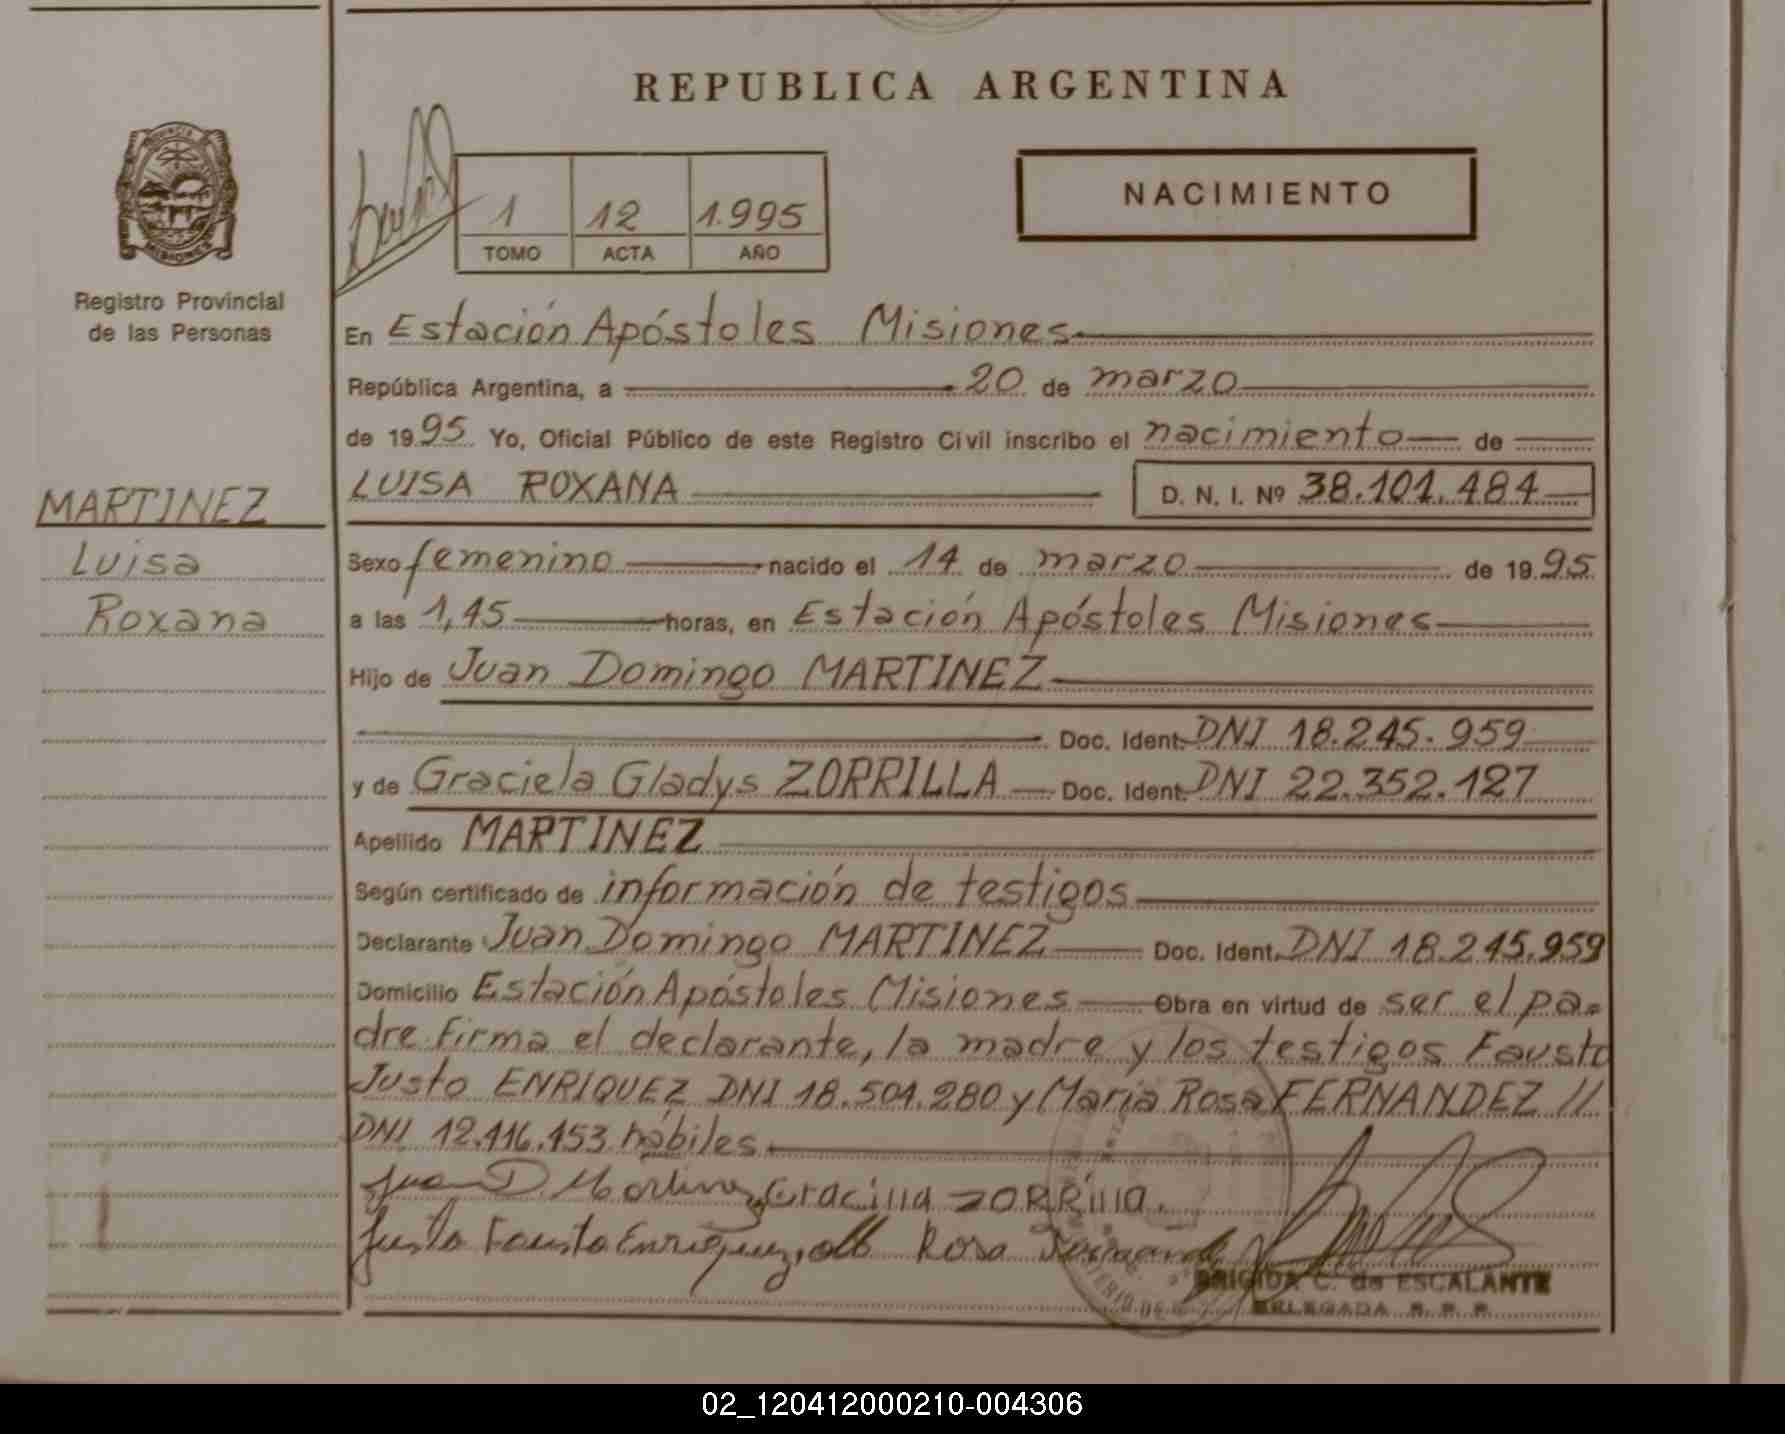 REPUBLICA ARGENTINA
NACIMIENTO
1 12 1.995
TOMO ACTA AÑO
Registro Provincial
de las Personas
MARTINEZ
Luisa
Roxana
En Estación Apóstoles Misiones
República Argentina, a 20 de marzo
de 1995 Yo, Oficial Público de este Registro Civil inscribo el nacimiento de
LUISA ROXANA D. N. I. Nº 38.101.484
Sexo femenino nacido el 14 de marzo de 1995
a las 1,45 horas, en Estación Apóstoles Misiones
Hijo de Juan Domingo MARTINEZ
Doc. Ident. DNI 18.245.959
y de Graciela Gladys ZORRILLA Doc. Ident. DNI 22.352.127
Apellido MARTINEZ
Según certificado de información de testigos
Declarante Juan Domingo MARTINEZ Doc. Ident. DNI 18.245.959
Domicilio Estación Apóstoles Misiones Obra en virtud de ser el pa-
dre firma el declarante, la madre y los testigos Fausto
Justo ENRIQUEZ DNI 18.501.280 y María Rosa FERNANDEZ //
DNI 12.116.153 hábiles
Juan D. Martinez Gracilla ZORRilla.
Justo Fausto Enriquez, Rosa
BRIGIDA C. de ESCALANTE
DELEGADA R. P. P.
02_120412000210-004306